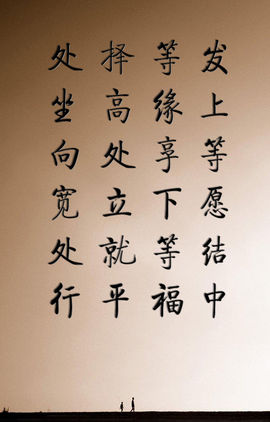 发上等愿结中
等缘享下等福
择高处立就平
处坐向宽处行